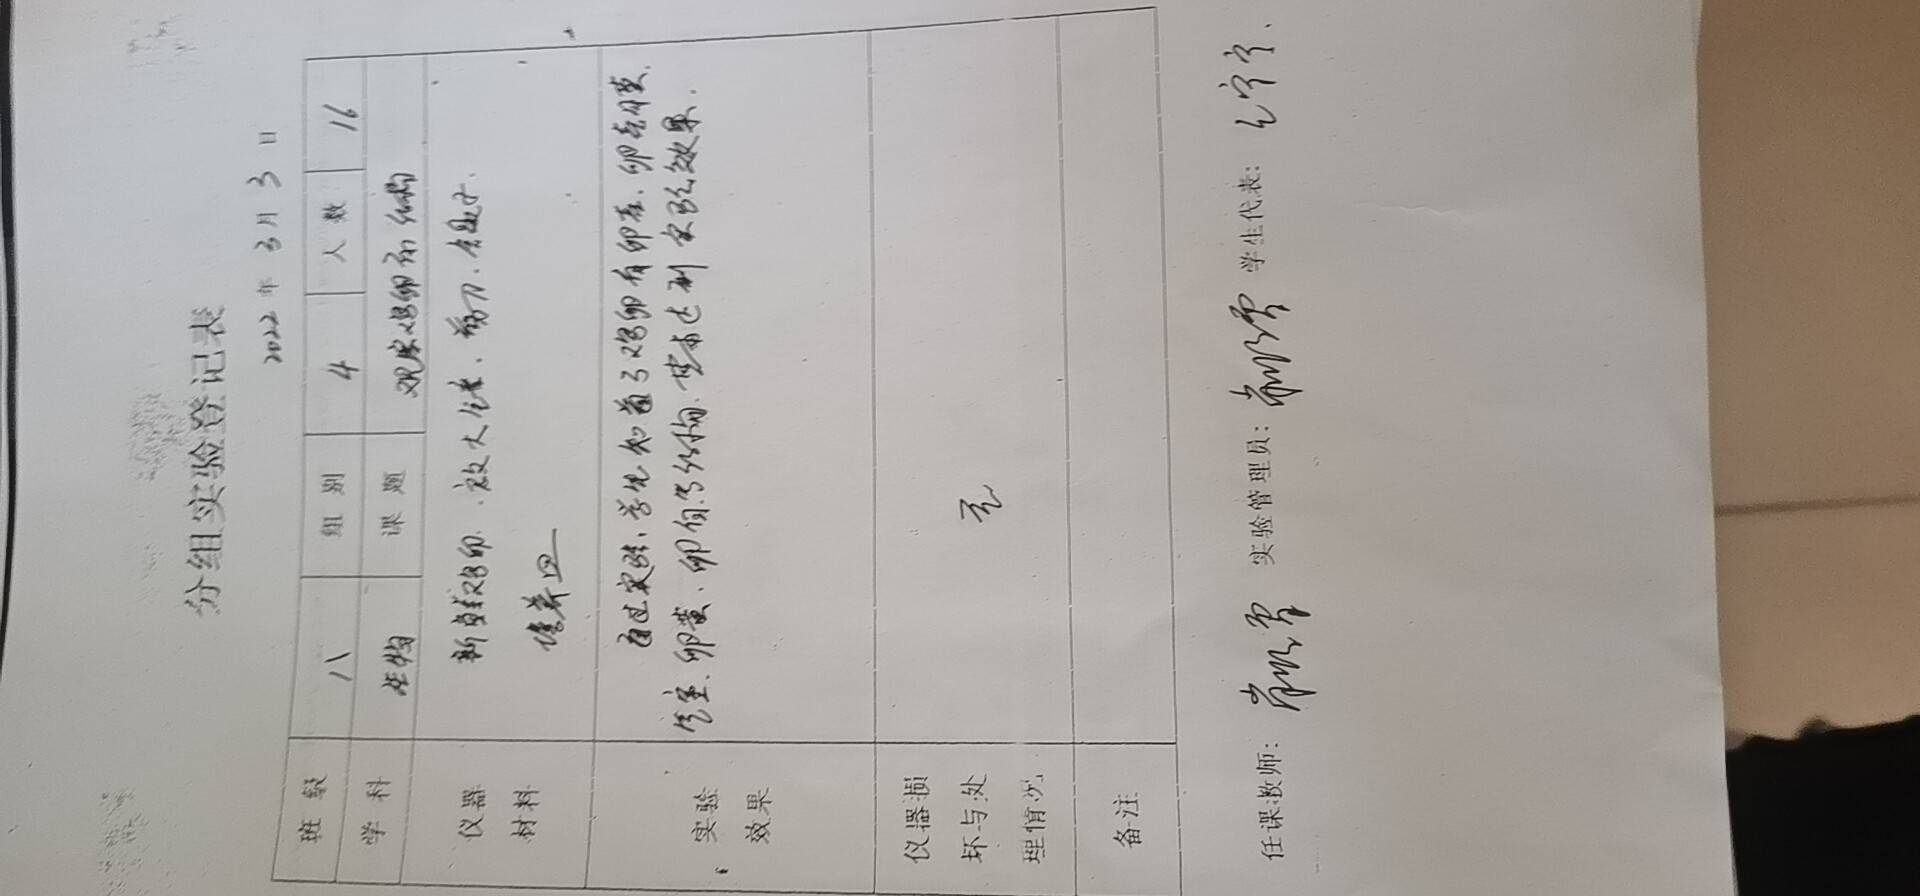 分组实验登记表
2022年3月3日
班级 八 组别 4 人数 16
学科 生物 课题 观察鸡卵的结构
仪器 新鲜鸡卵、放大镜、剪刀、镊子、
材料 培养皿
实验 通过实验,学生知道了鸡卵有卵壳、卵壳膜、
效果 气室、卵黄、卵白等结构,基本达到实验效果.
仪器损
坏与处 无
理情况
备注
任课教师: 实验管理员: 学生代表: